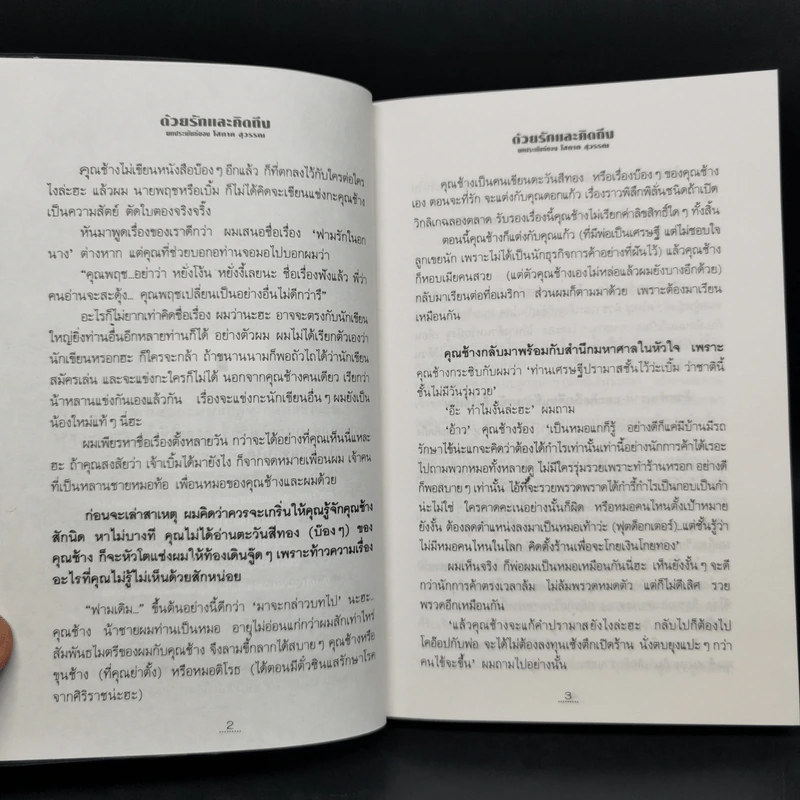 ด้วยรักและคิดถึง
บทประพันธ์ของ โสภาค สุวรรณ
คุณช้างไม่เขียนหนังสือบ๊องๆ อีกแล้ว ก็ที่ตกลงไว้กับใครต่อใคร
ไงล่ะฮะ แล้วผม นายพฤชหรือเบิ้ม ก็ไม่ได้คิดจะเขียนแข่งกะคุณช้าง
เป็นความสัตย์ ตัดใบตองจริงจริ๊ง
หันมาพูดเรื่องของเราดีกว่า ผมเสนอชื่อเรื่อง 'ฟามรักในอก
นาง' ต่างหาก แต่คุณที่ช่วยบอกอท่านจอมอไปบอกผมว่า
"คุณพฤช...อย่าว่า หยั่งโง้น หยั่งงี้เลยนะ ชื่อเรื่องฟังแล้ว พี่ว่า
คนอ่านจะสะดุ้ง... คุณพฤชเปลี่ยนเป็นอย่างอื่นไม่ดีกว่ารึ"
อะไรก็ไม่ยากเท่าคิดชื่อเรื่อง ผมว่านะฮะ อาจจะตรงกับนักเขียน
ใหญ่ยิ่งท่านอื่นอีกหลายท่านก็ได้ อย่างตัวผม ผมไม่ได้เรียกตัวเองว่า
นักเขียนหรอกฮะ ก็ใครจะกล้า ถ้าขนานนามก็พอถัวไถได้ว่านักเขียน
สมัครเล่น และจะแข่งกะใครก็ไม่ได้ นอกจากคุณช้างคนเดียว เรียกว่า
น้าหลานแข่งกันเองแล้วกัน เรื่องจะแข่งกะนักเขียนอื่นๆ ผมยังเป็น
น้องใหม่แท้ๆ นี่ฮะ
ผมเพียรหาชื่อเรื่องตั้งหลายวัน กว่าจะได้อย่างที่คุณเห็นนี่แหละ
ฮะ ถ้าคุณสงสัยว่า เจ้าเบิ้มได้มายังไง ก็จากจดหมายเพื่อนผม เจ้าคน
ที่เป็นหลานชายหมอท้อ เพื่อนหมอของคุณช้างและผมด้วย
ก่อนจะเล่าสาเหตุ ผมคิดว่าควรจะเกริ่นให้คุณรู้จักคุณช้าง
สักนิด หาไม่บางที คุณไม่ได้อ่านตะวันสีทอง (บ๊องๆ) ของ
คุณช้าง ก็จะหัวโตแช่งผมให้ท้องเดินจู๊ดๆ เพราะท้าวความเรื่อง
อะไรที่คุณไม่รู้ไม่เห็นด้วยสักหน่อย
"ฟามเดิม..." ขึ้นต้นอย่างนี้ดีกว่า 'มาจะกล่าวบทไป' นะฮะ...
คุณช้าง น้าชายผมท่านเป็นหมอ อายุไม่อ่อนแก่กว่าผมสักเท่าไหร่
สัมพันธไมตรีของผมกับคุณช้าง จึงลามขี้กลากได้สบายๆ คุณช้างหรือ
ขุนช้าง (ที่คุณย่าตั้ง) หรือหมอดิโรธ (ได้ตอนมีตั๋วซินแสรักษาโรค
จากศิริราชน่ะฮะ)
2
ด้วยรักและคิดถึง
บทประพันธ์ของ โสภาค สุวรรณ
คุณช้างเป็นคนเขียนตะวันสีทอง หรือเรื่องบ๊องๆ ของคุณช้าง
เอง ตอนจะที่รัก จะแต่งกับคุณดอกแก้ว เรื่องราวพิลึกพิลั่นชนิดถ้าเปิด
วิกลิเกฉลองตลาด รับรองเรื่องนี้คุณช้างไม่เรียกค่าลิขสิทธิ์ใดๆ ทั้งสิ้น
ตอนนี้คุณช้างก็แต่งกับคุณแก้ว (ที่มีพ่อเป็นเศรษฐี แต่ไม่ชอบใจ
ลูกเขยนัก เพราะไม่ได้เป็นนักธุรกิจการค้าอย่างที่ฝันไว้) แล้วคุณช้าง
ก็หอบเมียคนสวย (แต่ตัวคุณช้างเองไม่หล่อแล้วผมยังบางอีกด้วย)
กลับมาเรียนต่อที่อเมริกา ส่วนผมก็ตามมาด้วย เพราะต้องมาเรียน
เหมือนกัน
คุณช้างกลับมาพร้อมกับสำนึกมหาศาลในหัวใจ เพราะ
คุณช้างกระซิบกับผมว่า 'ท่านเศรษฐีปรามาสชั้นไว้ว่ะเบิ้ม ว่าชาตินี้
ชั้นไม่มีวันรุ่มรวย'
'อ๊ะ ทำไมงั้นล่ะฮะ' ผมถาม
'อ้าว' คุณช้างร้อง 'เป็นหมอแกก็รู้ อย่างดีก็แค่มีบ้านมีรถ
รักษาไข้น่ะแกจะคิดว่าต้องได้กำไรเท่านั้นเท่านี้อย่างนักการค้าได้เรอะ
ไปถามพวกหมอทั้งหลายดู ไม่มีใครรุ่มรวยเพราะทำร้านหรอก อย่างดี
ก็พอสบายๆ เท่านั้น ไอ้ที่จะรวยพรวดพราดได้กำรี้กำไรเป็นกอบเป็นกำ
น่ะไม่ใช่ ใครคาดคะเนอย่างนั้นก็ผิด หรือหมอคนไหนตั้งเป้าหมาย
ยังงั้น ต้องลดตำแหน่งลงมาเป็นหมอเท้าว่ะ (ฟุตด็อกเตอร์)...แต่ชั้นรู้ว่า
ไม่มีหมอคนไหนในโลก คิดตั้งร้านเพื่อจะโกยเงินโกยทอง'
ผมเห็นจริง ก็พ่อผมเป็นหมอเหมือนกันนี่ฮะ เห็นยังงั้นๆ จะดี
กว่านักการค้าตรงเวลาล้ม ไม่ล้มพรวดหมดตัว แต่ก็ไม่ดีเลิศ รวย
พรวดอีกเหมือนกัน
'แล้วคุณช้างจะแก้คำปรามาสยังไงล่ะฮะ กลับไปก็ต้องไป
โคอ๊อปกับพ่อ จะได้ไม่ต้องลงทุนเซ้งตึกเปิดร้าน นั่งตบยุงแปะๆ กว่า
คนไข้จะขึ้น' ผมถามไปอย่างนั้น
3